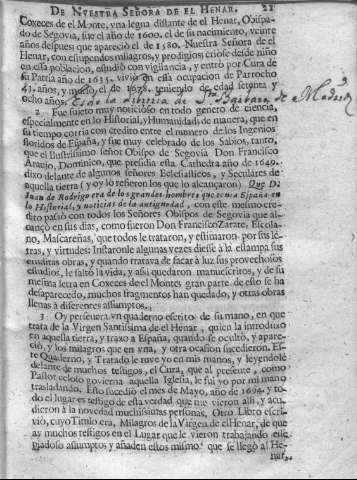 DE NVESTRA SEÑORA DE EL HENAR. 21
Coxeces de el Monte, vna legua distante de el Henar, Obispa-
do de Segovia, fue el año de 1600. el de su nacimiento, veinte
años despues que apareciò el de 1580. Nuestra Señora de el
Henar, con estupendos milagros, y prodigios; criose desde niño
en esta poblacion, estudiò con vigilancia, y entrò por Cura de
su Patria año de 1635. viviò en esta ocupacion de Parrocho
43. años, y murio, el de 1678. teniendo de edad setenta y
ocho años. de Madrid
2. Fue sugeto muy noticioso en todo genero de ciencias,
especialmente en lo Historial, y Humanidad de manera, que en
su tiempo corria con credito entre el numero de los Ingenios
floridos de España, y fue muy celebrado de los Sabios, tanto,
que el Illustrissimo señor Obispo de Segovia Don Francisco
Araujo, Dominico, que presidia essa Cathedra año de 1649.
dixo delante de algunos señores Eclesiasticos, y Seculares de
aquella tierra (y oy lo refieren los que lo alcançaron) Que D.
Juan de Rodrigo era de los grandes hombres que tenia España en
lo Historial, y noticias de la antiguedad, con este mesmo cre-
dito passò con todos los Señores Obispos de Segovia que al-
cançò en sus dias, como fueron Don Francisco Zarate, Escola-
no, Mascareñas, que todos le trataron, y estimaron por sus le-
tras, y virtudes: Instaronle algunas vezes diesse à la estampa sus
eruditas obras, y quando tratava de sacar à luz sus provechosos
estudios, le faltò la vida, y assi quedaron manuscritos, y de su
mesma letra en Coxeces de el Monte; gran parte de esto se ha
desaparecido, muchos fragmentos han quedado, y otras obras
llenas à diferentes assumptos.
3. Oy persevera vn quaderno escrito de su mano, en que
trata de la Virgen Santissima de el Henar, quien la introduxo
en aquella tierra, y traxo à España, quando se ocultò, y apare-
ciò, y los milagros que en vna, y otra ocasion sucedieron. Es-
te Quaderno, y Tratado le tuve yo en mis manos, y leyendolè
delante de muchos testigos, el Cura, que al presente, como
Pastor zeloso govierna aquella Iglesia, le fui yo por mi mano
trasladando. Esto sucediò el mes de Mayo, año de 1694. y to-
do el lugar es testigo de esta verdad que me vieron alli, y acu-
dieron à la novedad muchissimas personas. Otro Libro escri-
viò, cuyo Titulo era, Milagros de la Virgen de el Henar, de que
ay muchos testigos en el Lugar que le vieron trabajando este
piadoso assumpto y añaden estos mismos, que se llegò al He-